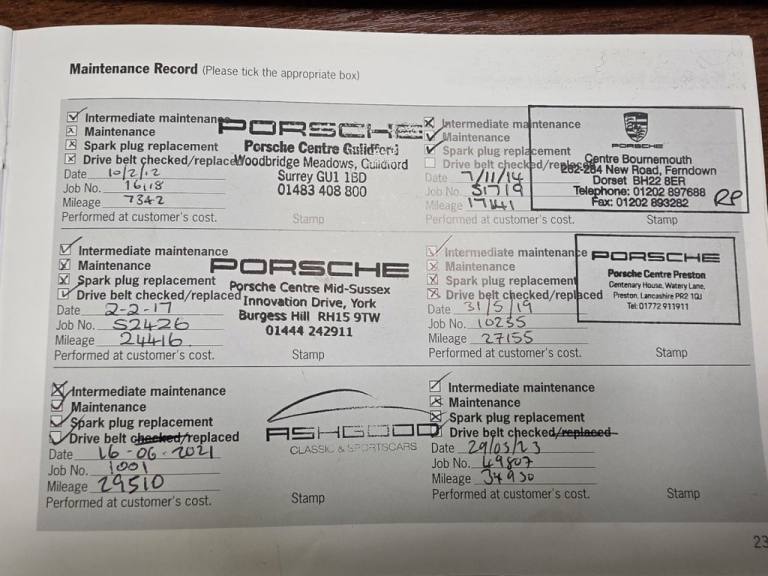 Maintenance Record (Please tick the appropriate box)
Intermediate maintenance
Maintenance
Spark plug replacement
Drive belt checked/replaced
Date 10/2/12
Job No. 16118
Mileage 7342
Performed at customer's cost.
PORSCHE
Porsche Centre Guildford
Woodbridge Meadows, Guildford
Surrey GU1 1BD
01483 408 800
Stamp
Intermediate maintenance
Maintenance
Spark plug replacement
Drive belt checked/replaced
Date 7/11/14
Job No. 51719
Mileage 17141
Performed at customer's cost.
PORSCHE
Centre Bournemouth
262-284 New Road, Ferndown
Dorset BH22 8ER
Telephone: 01202 897688
Fax: 01202 893282
RP
Stamp
Intermediate maintenance
Maintenance
Spark plug replacement
Drive belt checked/replaced
Date 2-2-17
Job No. 52426
Mileage 24416
Performed at customer's cost.
PORSCHE
Porsche Centre Mid-Sussex
Innovation Drive, York
Burgess Hill RH15 9TW
01444 242911
Stamp
Intermediate maintenance
Maintenance
Spark plug replacement
Drive belt checked/replaced
Date 31/5/19
Job No. 10255
Mileage 27155
Performed at customer's cost.
PORSCHE
Porsche Centre Preston
Centenary House, Watery Lane,
Preston, Lancashire PR2 1QJ
Tel: 01772 911911
Stamp
Intermediate maintenance
Maintenance
Spark plug replacement
Drive belt checked/replaced
Date 16-06-2021
Job No. 1001
Mileage 29510
Performed at customer's cost.
ASHGOOD
CLASSIC & SPORTSCARS
Stamp
Intermediate maintenance
Maintenance
Spark plug replacement
Drive belt checked/replaced
Date 29/03/23
Job No. 49807
Mileage 34930
Performed at customer's cost.
Stamp
23